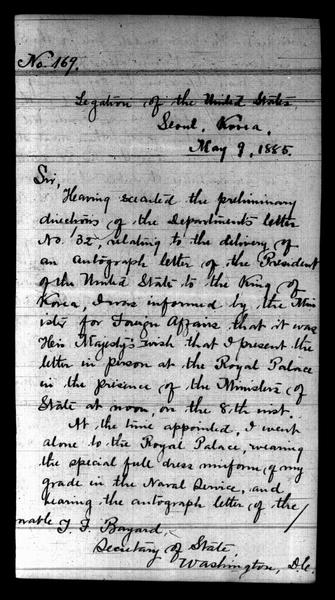 No. 169.
Legation of the United States,
Seoul, Korea,
May 9, 1885.
Sir,
Having executed the preliminary
directions of the Department's letter
No. 32, relating to the delivery of
an autograph letter of the President
of the United State to the King of
Korea, I was informed by the Min
ister for Foreign Affairs that it was
His Majesty's wish that I present the
letter in person at the Royal Palace
in the presence of the Ministers of
State at noon, on the 8th inst.
At the time appointed, I went
alone to the Royal Palace, wearing
the special full dress uniform of my
grade in the Naval Service, and
bearing the autograph letter of the
norable T. F. Bayard,
Secretary of State,
Washington, D.C.